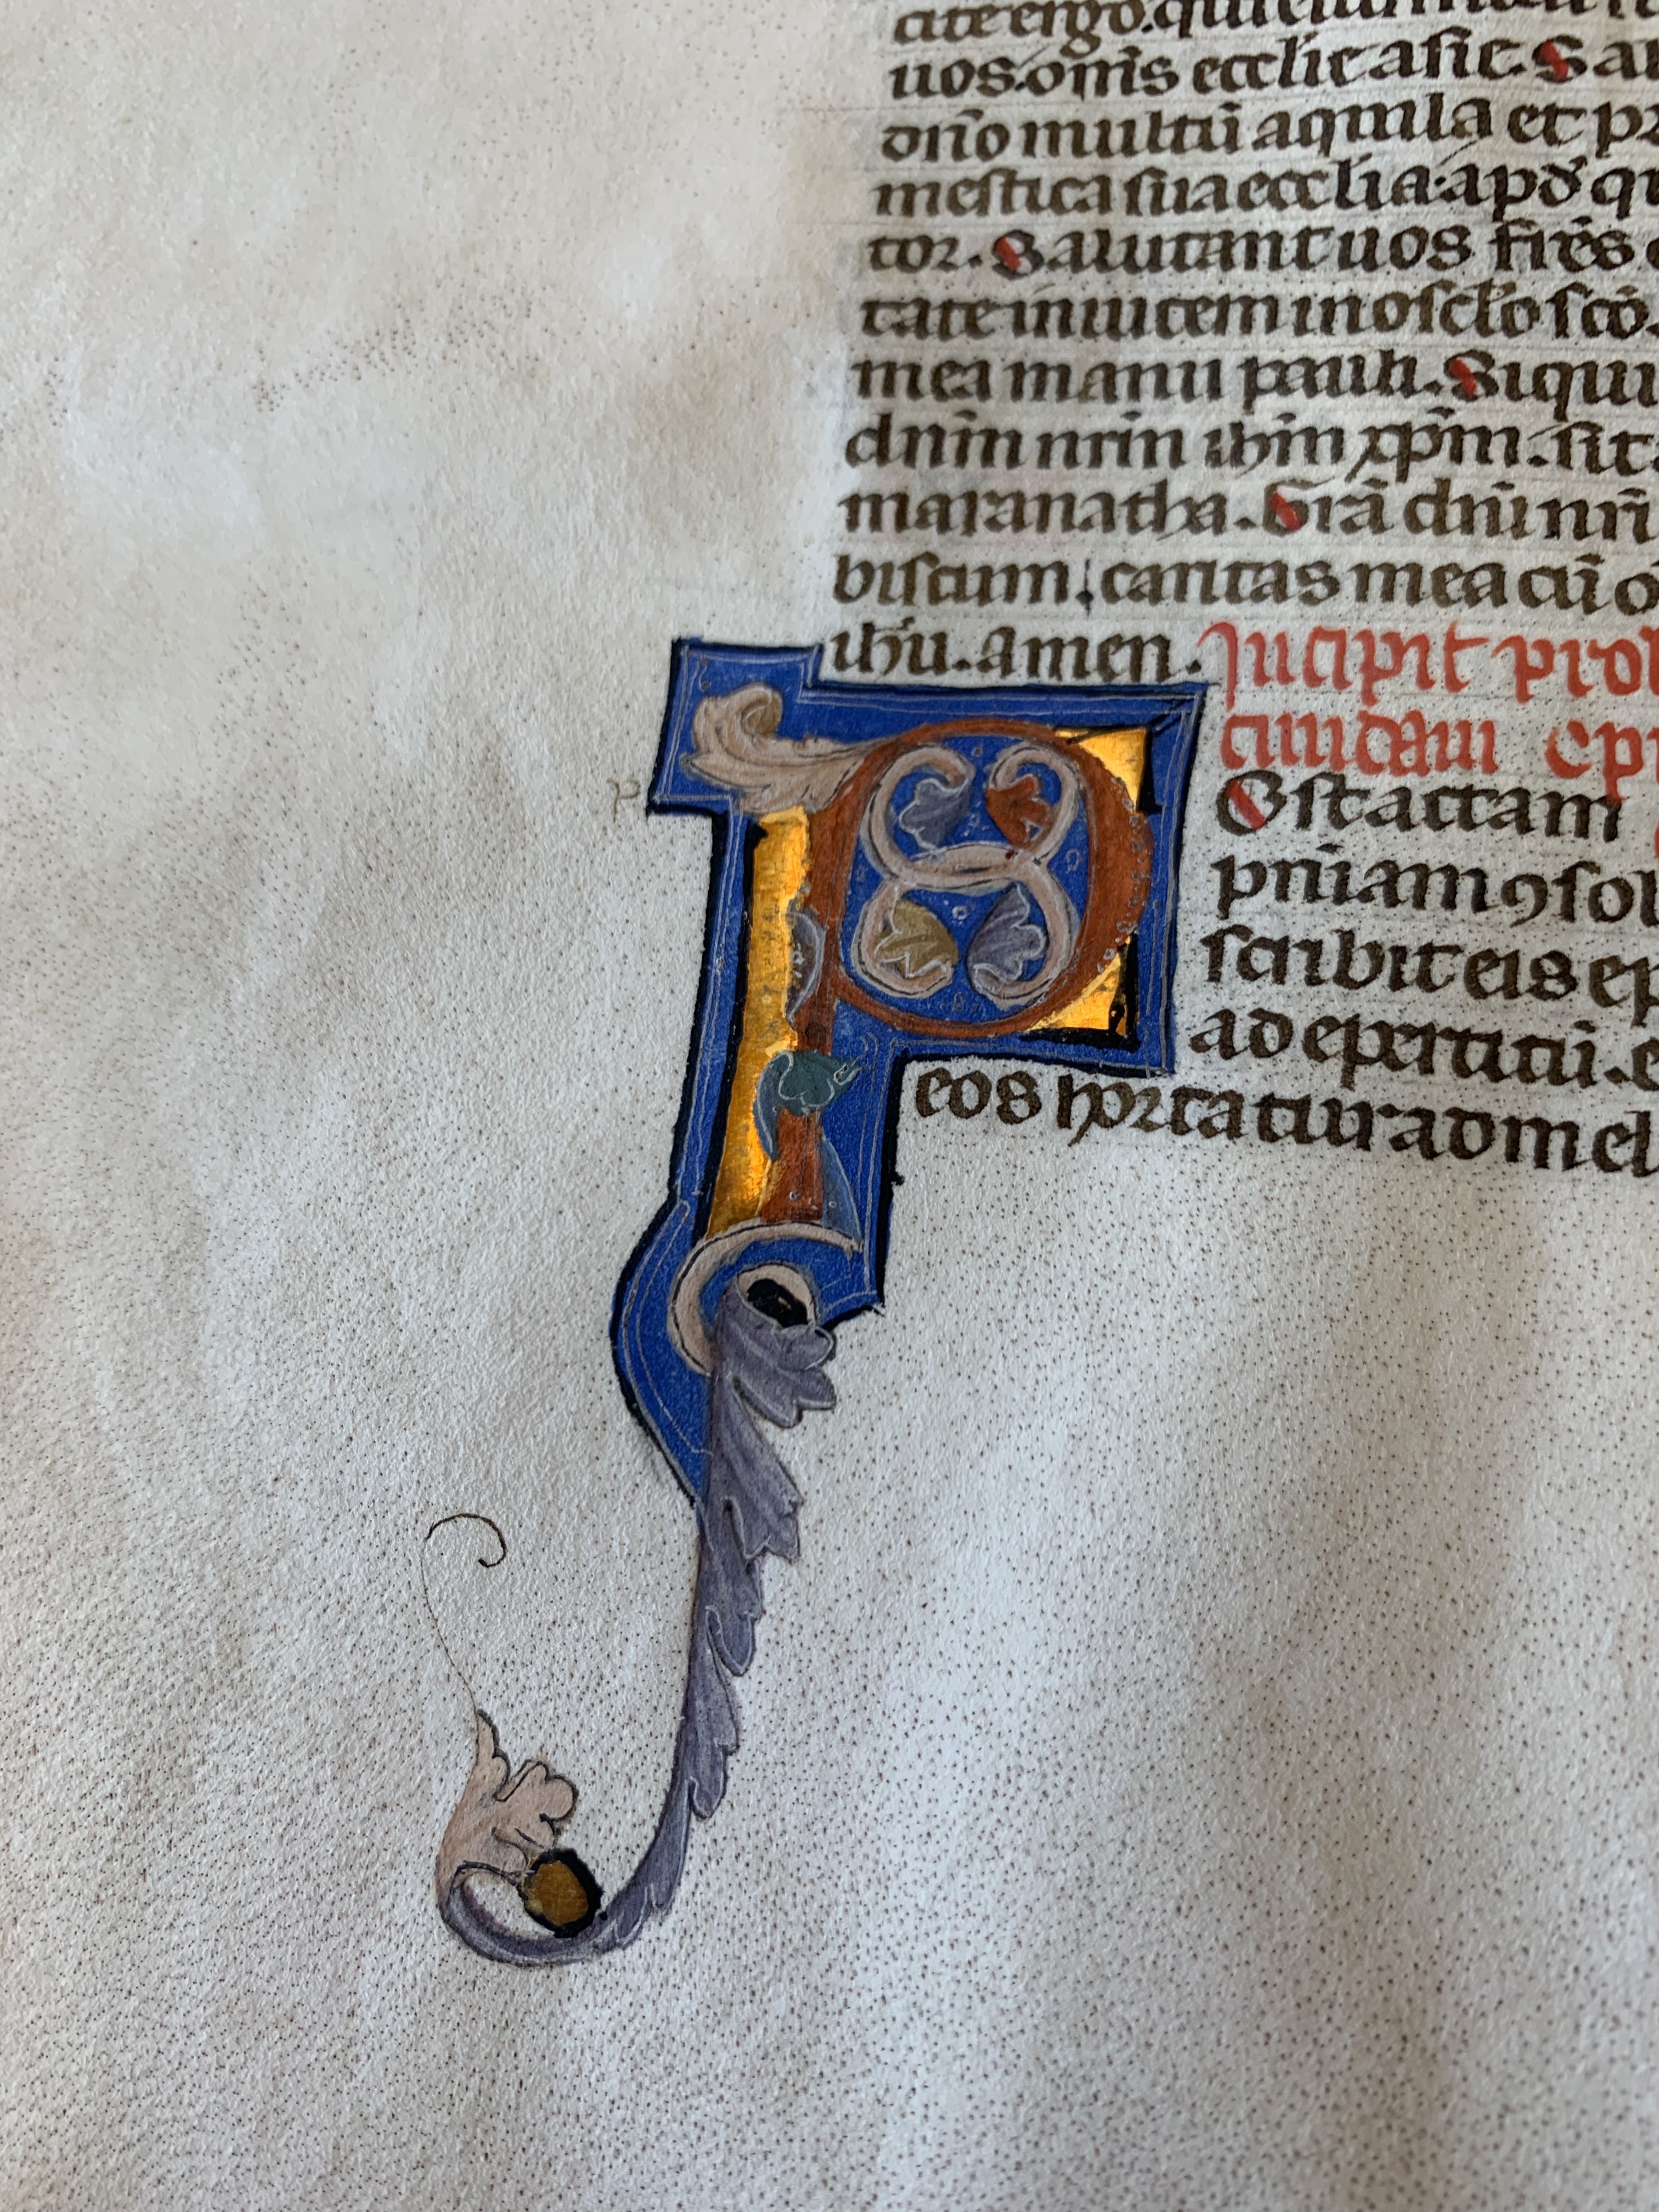 cite ergo. qui eiusmodi
uos. om̄s eccl'ie asie. Sal
dn̄o multū aquila et pr
mestica sua eccl'ia. apd' q
tor. Salutant uos fr̄es
tate inuicem in osc'lo sc̄o.
mea manu pauli. Si qui
dn̄m nr̄m ih̄m xp̄m. sit
maranatha. Gr̄a dn̄i nr̄i
biscum. caritas mea cū o
ih̄u. amen. Incipit prol
cundam epi
p
P Ost actam
pn̄iam ꝯsol
scribit eis ep
ad expectatū. e
eos hortatur ad mel